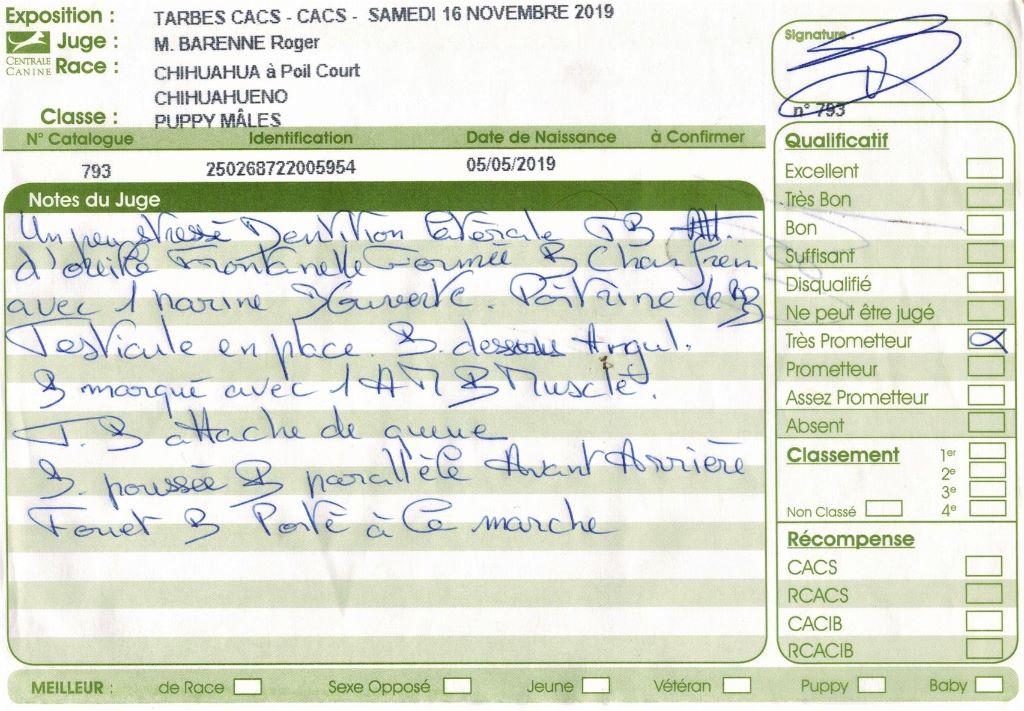 Exposition : TARBES CACS - CACS - SAMEDI 16 NOVEMBRE 2019
Juge : M. BARENNE Roger
CENTRALE CANINE
Race : CHIHUAHUA à Poil Court
CHIHUAHUENO
Classe : PUPPY MÂLES
Signature :
n° 793
N° Catalogue Identification Date de Naissance à Confirmer
793 250268722005954 05/05/2019
Notes du Juge
Un peu stressé Dentition latérale TB Att.
d'oreille Frontanelle Formée B Chanfrein
avec 1 narine ouverte. Poitrine de
Testicule en place. B. dessous Angul.
B marqué avec 1 AR B Musclé.
T. B attache de queue
B. poussée B parallèle Avant Arrière
Fouet B Porté à la marche
Qualificatif
Excellent
Très Bon
Bon
Suffisant
Disqualifié
Ne peut être jugé
Très Prometteur
Prometteur
Assez Prometteur
Absent
Classement 1er
2e
3e
Non Classé 4e
Récompense
CACS
RCACS
CACIB
RCACIB
MEILLEUR : de Race Sexe Opposé Jeune Vétéran Puppy Baby